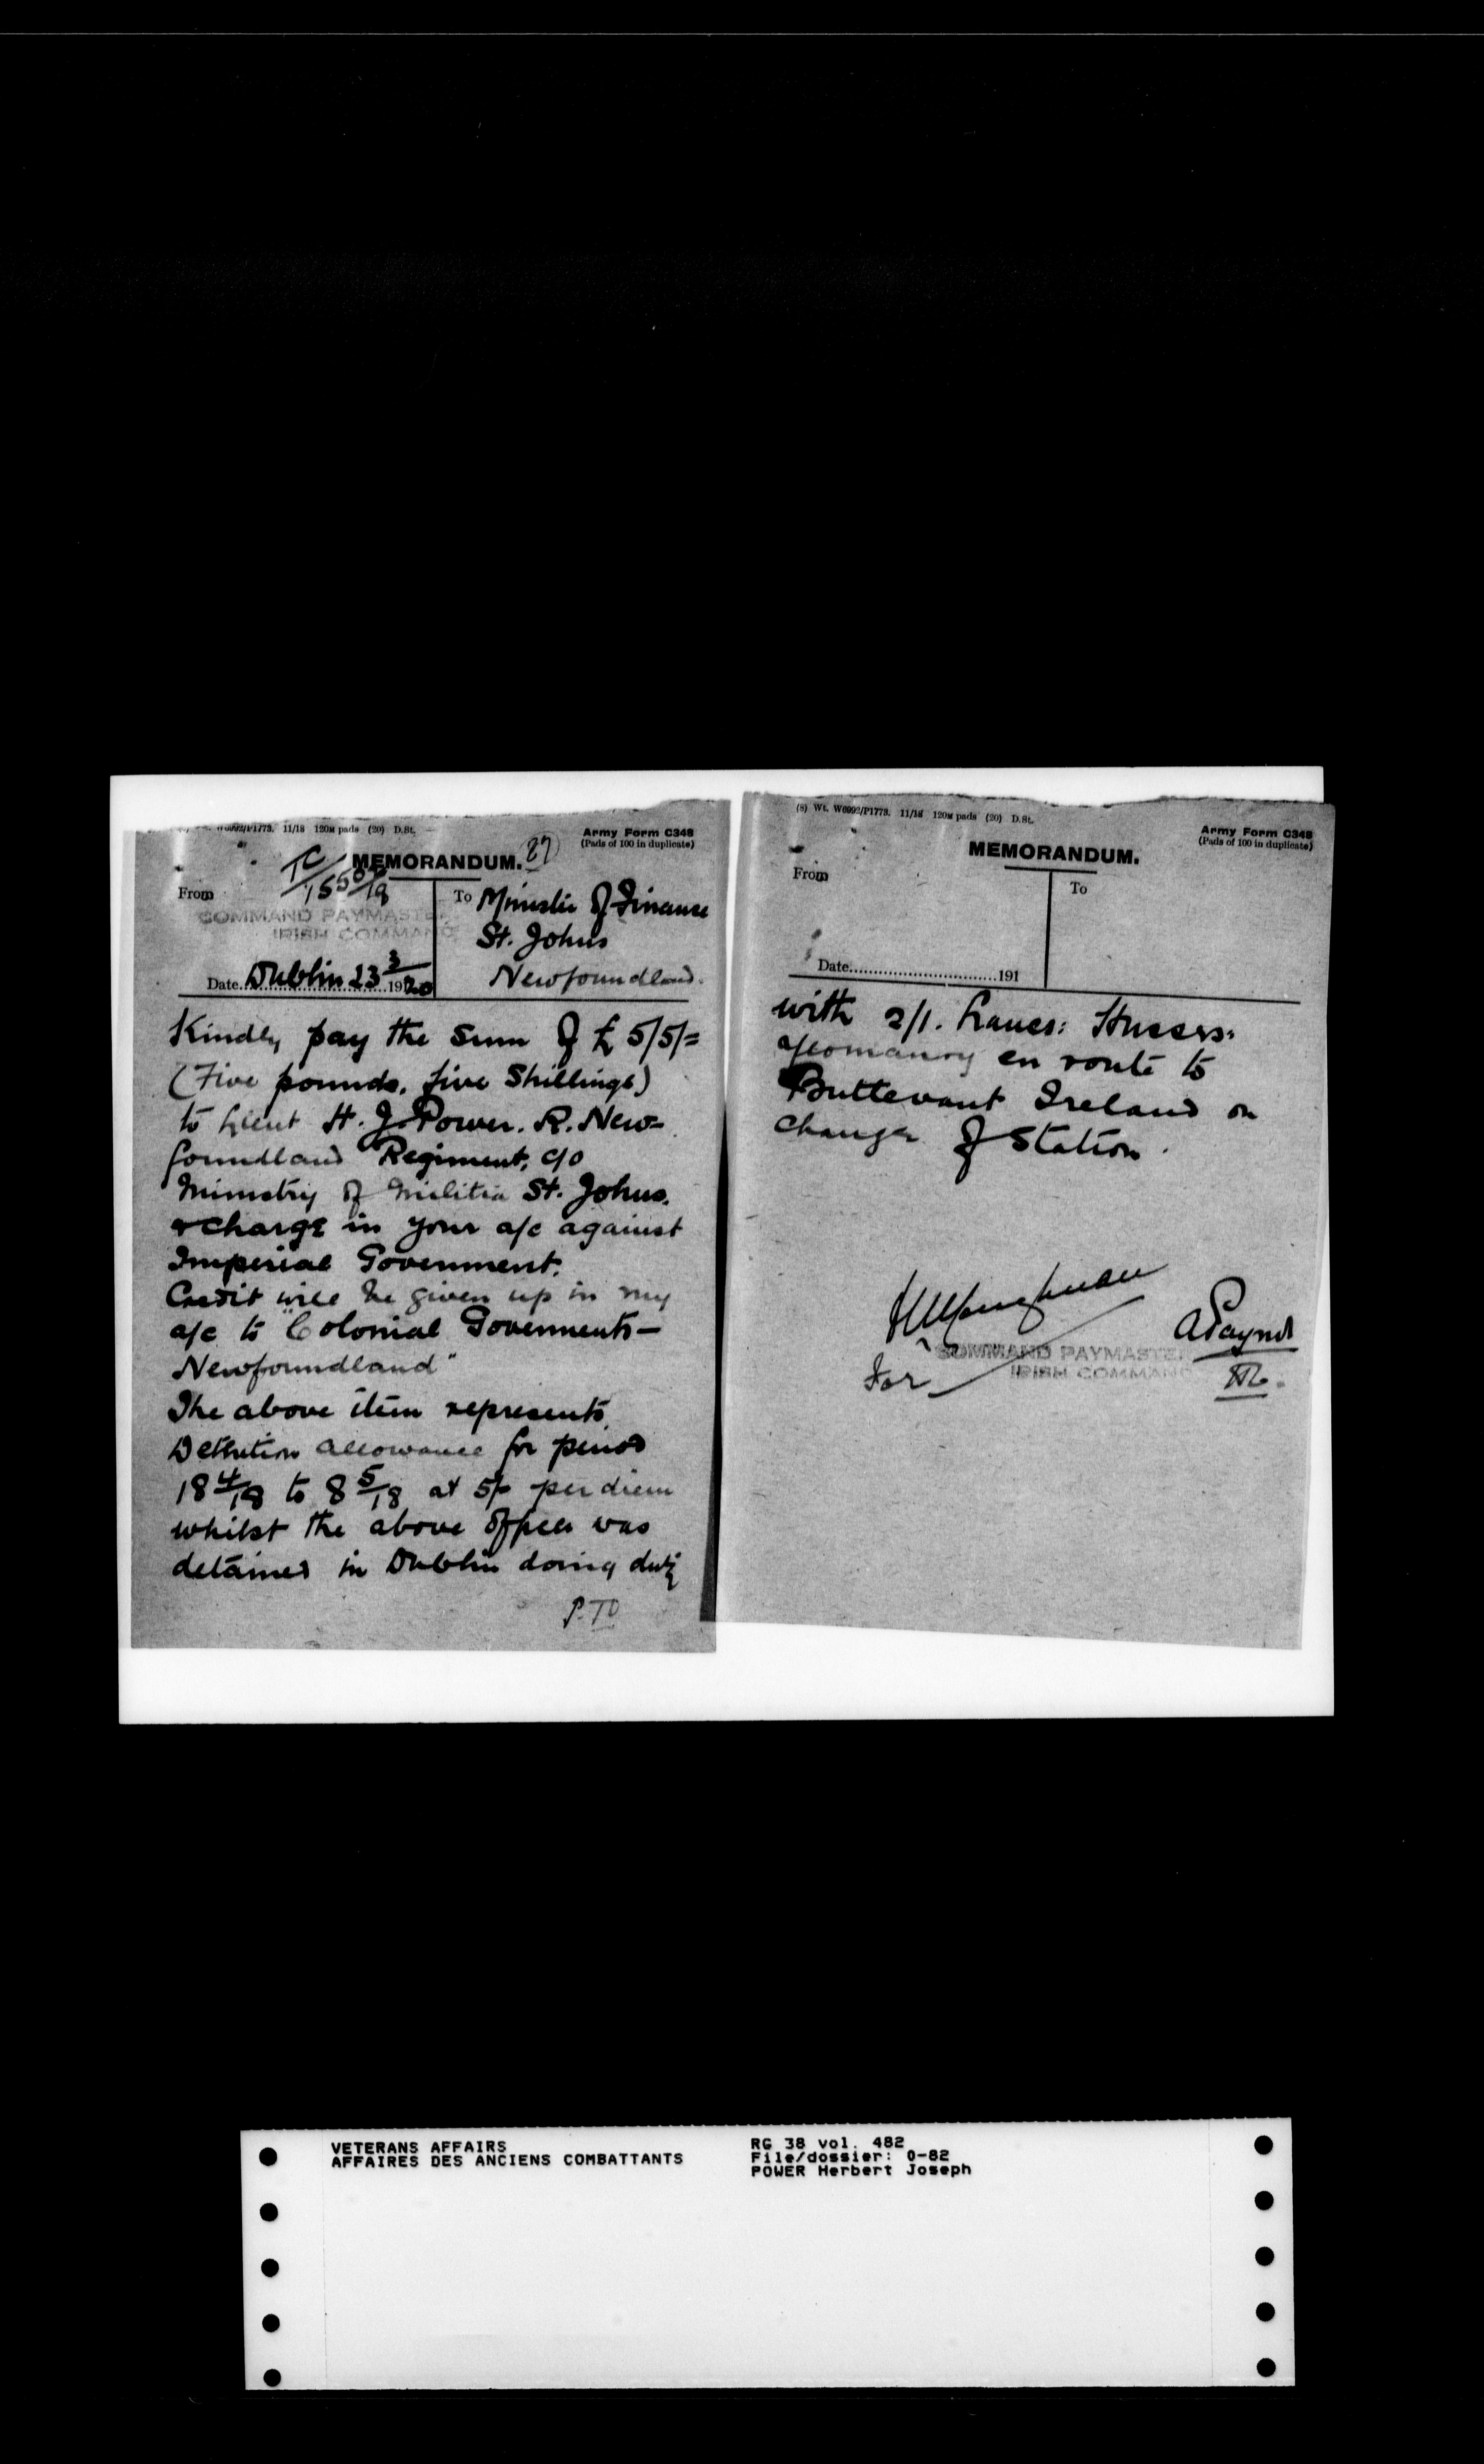 W6992/P1773. 11/18 120M pads (20) D.St.
Army Form C348
(Pads of 100 in duplicate)
MEMORANDUM. 27
TC/
From
COMMAND PAYMASTER
IRISH COMMAND
Date Dublin 23 3/1920
To Minister of Finance
St. Johns
Newfoundland.
Kindly pay the sum of £5/5/=
(Five pounds, five Shillings)
to Lieut H. J. Power. R. New-
foundland Regiment, c/o
Ministry of Militia St. Johns.
& charge in your a/c against
Imperial Government.
Credit will be given up in my
a/c to "Colonial Governments—
Newfoundland"
The above item represents
Detention allowance for period
18 4/18 to 8 5/18 at 5/- per diem
whilst the above officer was
detained in Dublin doing duty
P.T.O
(8) Wt. W6992/P1773. 11/18 120M pads (20) D.St.
Army Form C348
(Pads of 100 in duplicate)
MEMORANDUM.
From
To
Date 191
with 2/1. Lancs: Hussars.
Yeomanry en route to
Buttevant Ireland on
change of Station.
For
COMMAND PAYMASTER
IRISH COMMAND
VETERANS AFFAIRS
AFFAIRES DES ANCIENS COMBATTANTS
RG 38 vol. 482
File/dossier: 0-82
POWER Herbert Joseph